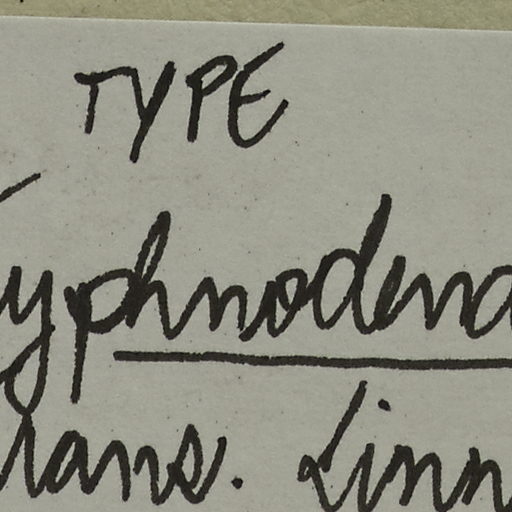 TYPE
Typhnodend
Trans. Linn